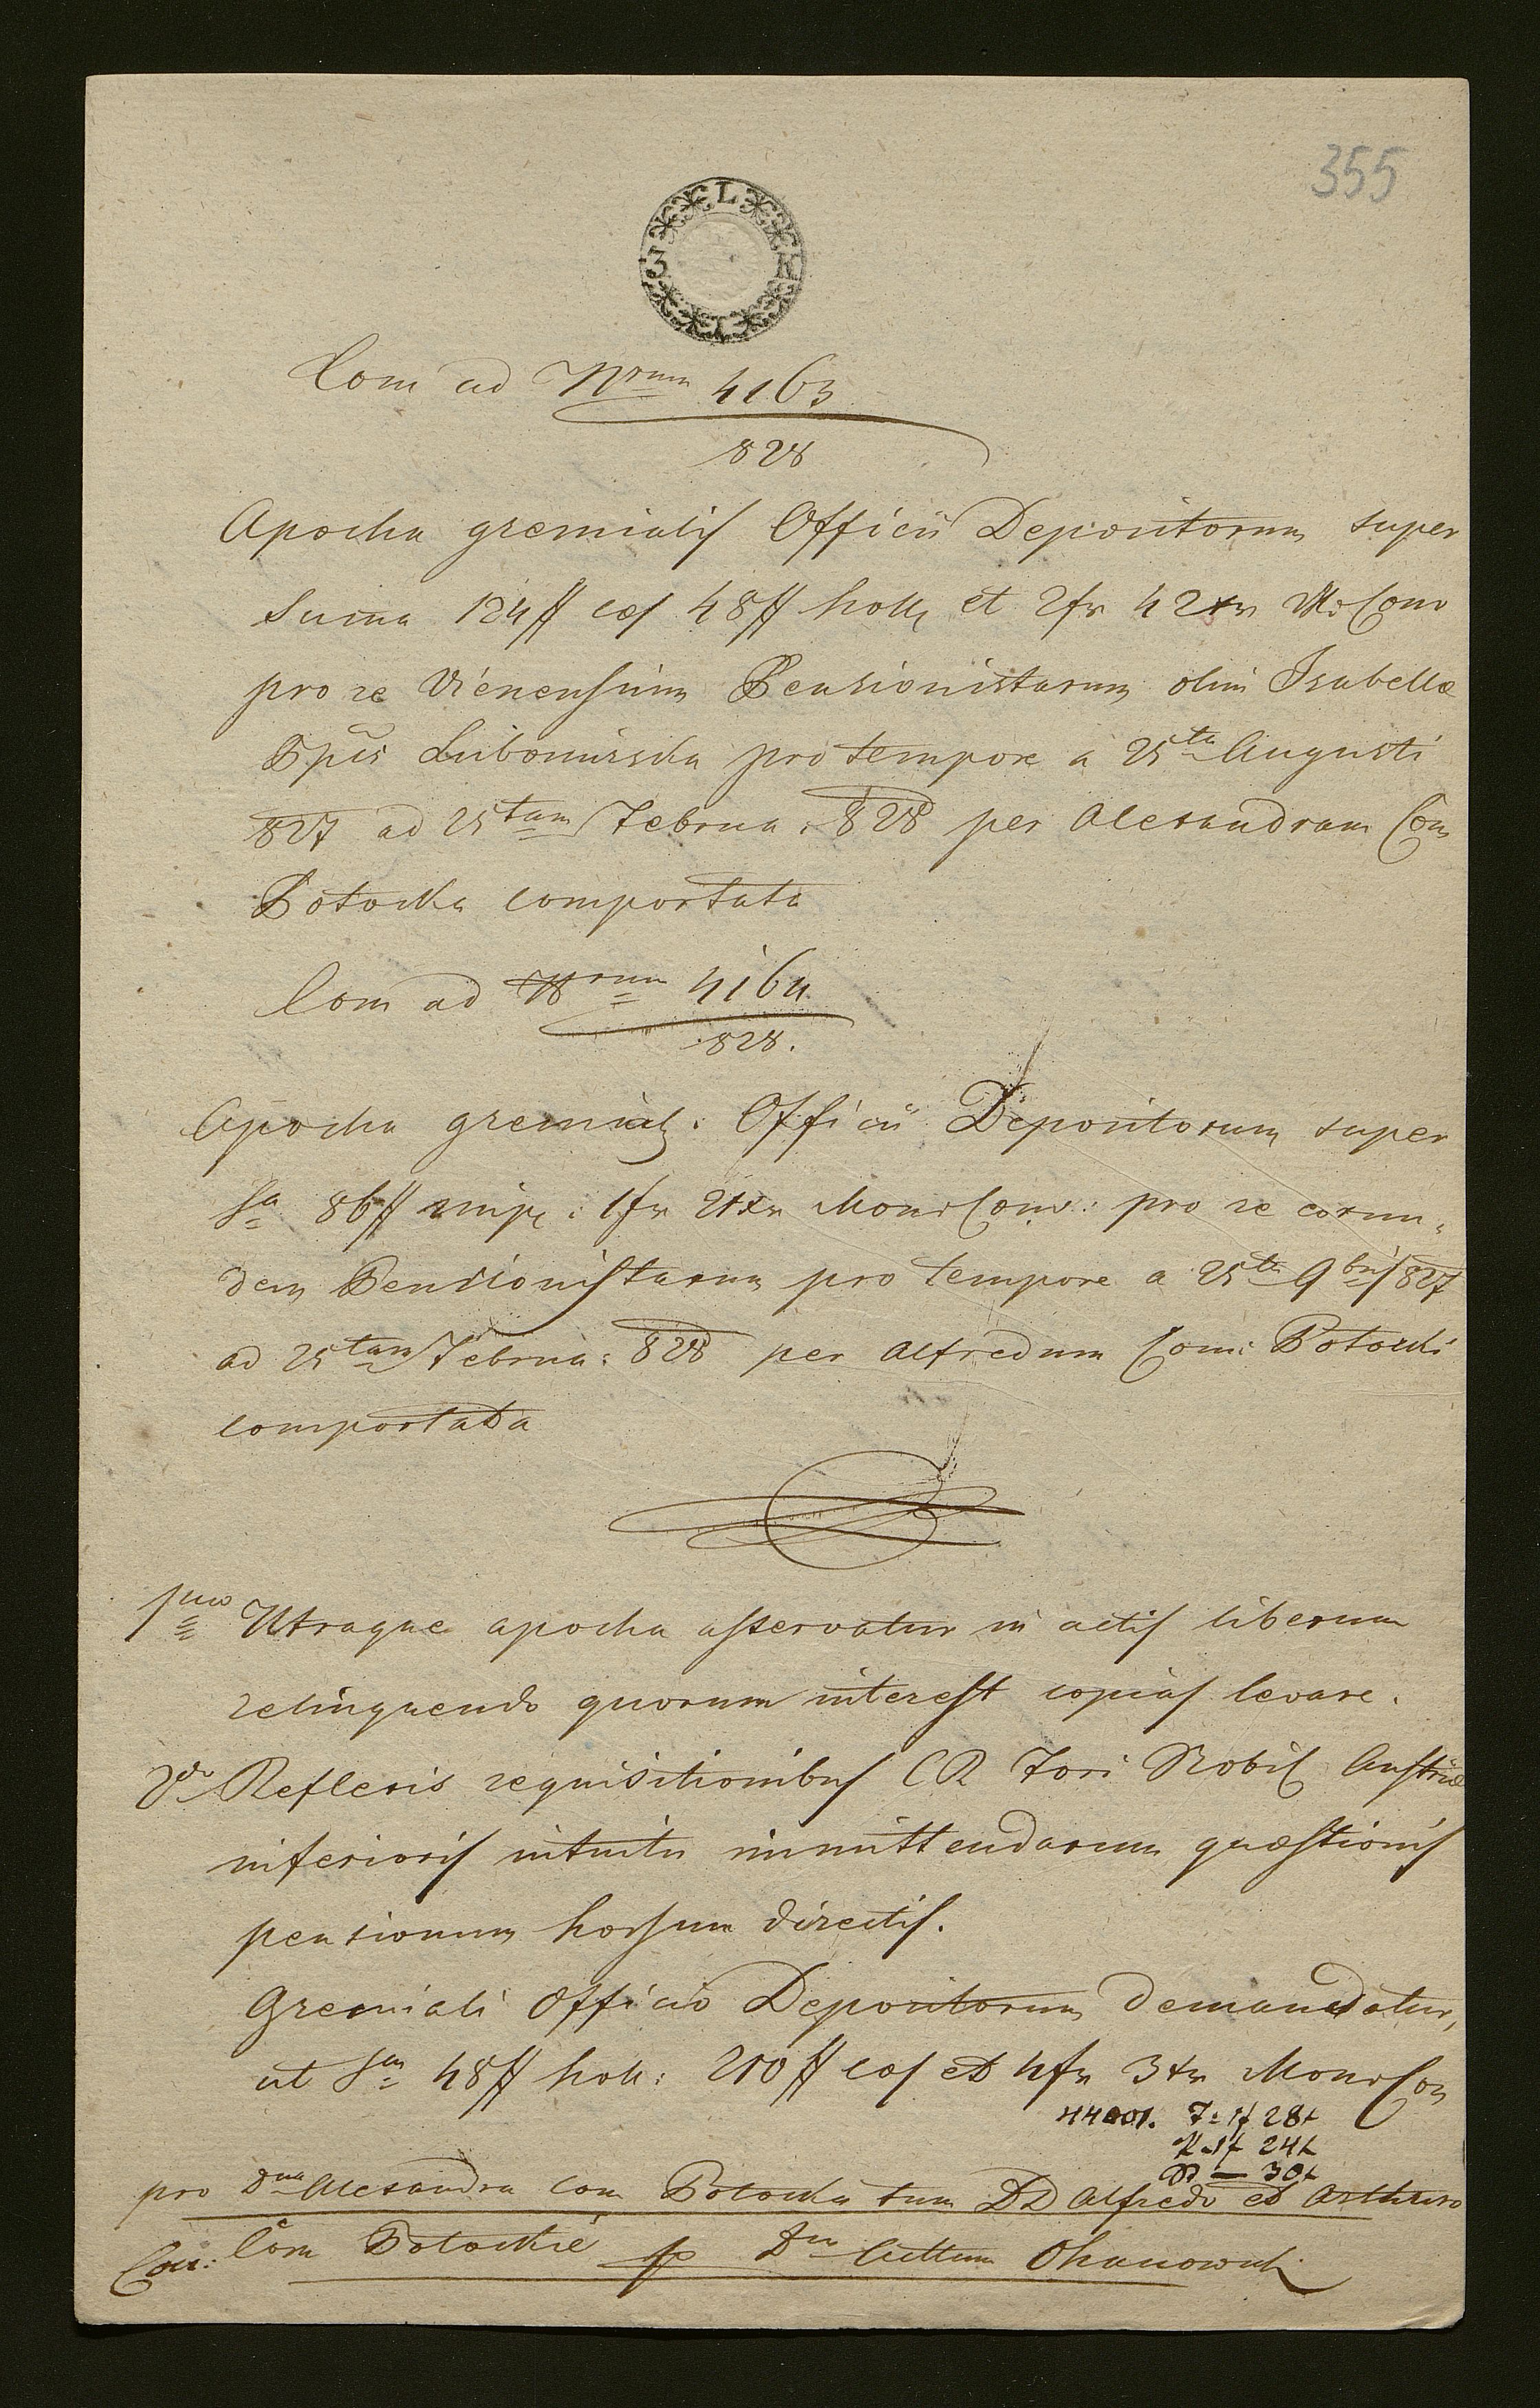 355
3 L K
Com ad Nrum 4163
828
Apocha gremialis Officii Depositorum super
Suma 124 ff caes 48 ff holl et 2 fr 42 xr M: Conv
pro re Vienensium Pensionistarum olim Isabellæ
Ppis Lubomirska pro tempore a 25ta Augusti
827 ad 25tam Februa: 828 per Alexandram Com
Potocka comportata
Com ad Nrum 4164
828.
Apocha gremial: Officii Depositorum super
Sa 86 ff 1 fr 21 xr Mon: Conv: pro re eorun-
dem Pensionistarum pro tempore a 25ta 9bris 827
ad 25tam Februa: 828 per Alfredum Com: Potocki
comportata
1mo Utraque apocha asservatur in actis liberum
relinquendo quorum interest copias levare.
2do Reflexis requisitionibus CR Fori Nobil Austriæ
inferioris intuitu immittendarum quæstionis
pensionum horsum directis.
Gremiali Officio Depositorum demandatur,
ut Sam 48 ff holl: 210 ff caes et 4 fr 3 xr Mon: Con
44001. 7: 1f 28x
1f 24x
— 30x
pro Dna Alexandra Com Potocka tum DD Alfredo et Arthuro
Com Potockie p Dnum Okanowski